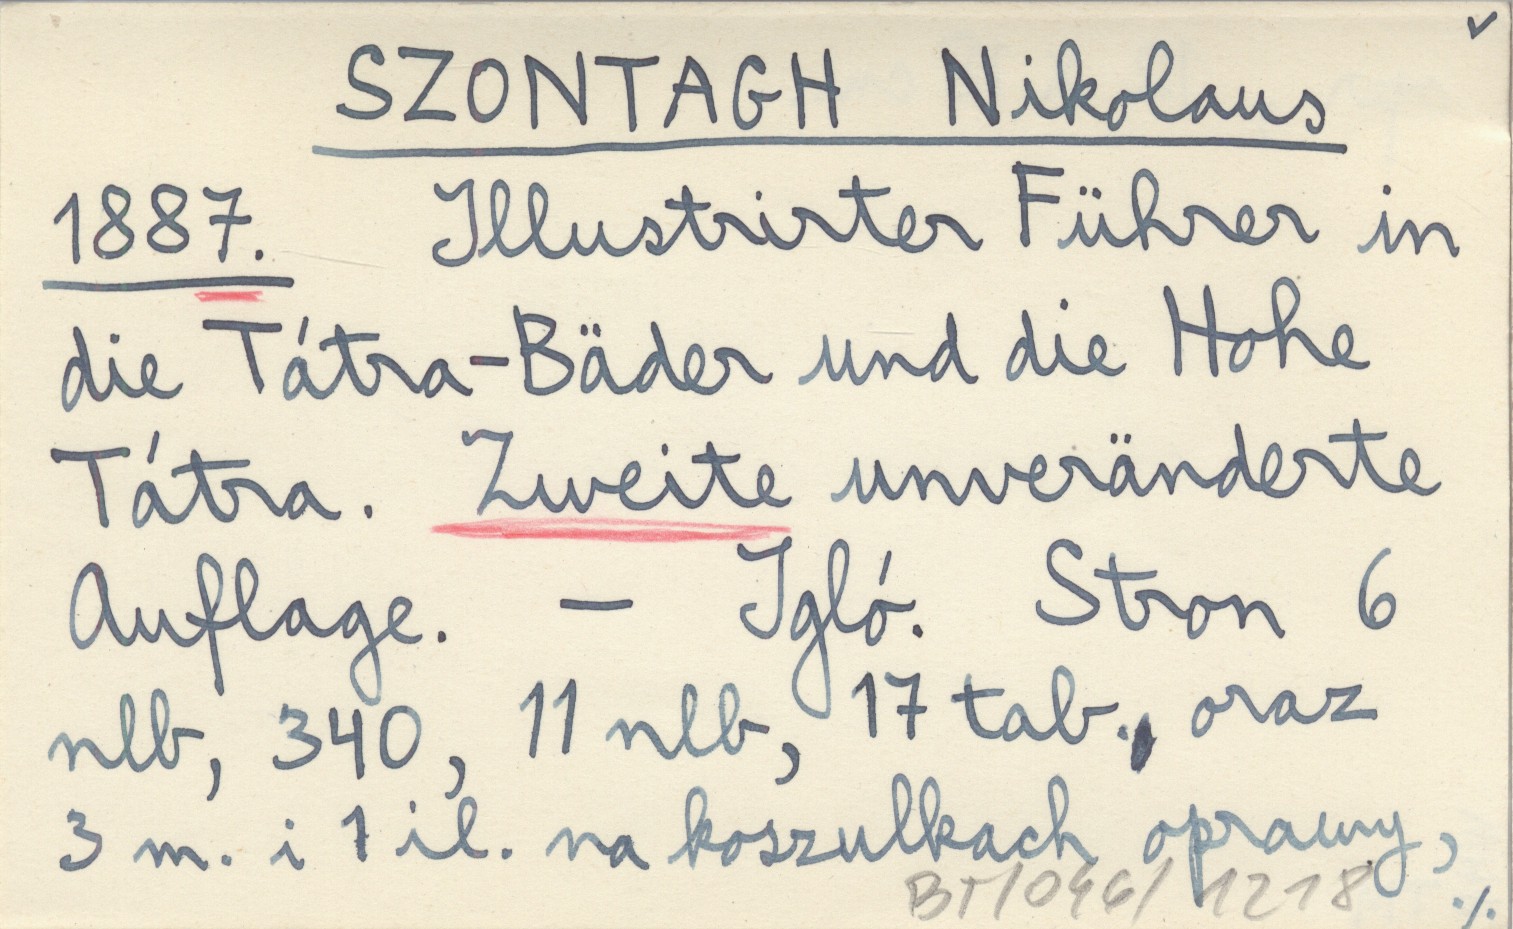 SZONTAGH Nikolaus
1887. Illustrirter Führer in
die Tátra-Bäder und die Hohe
Tátra. Zweite unveränderte
Auflage. — Igló. Stron 6
nlb, 340, 11 nlb, 17 tab., oraz
3 m. i 1 il. na koszulkach oprawy,
BT/046/1218
./.